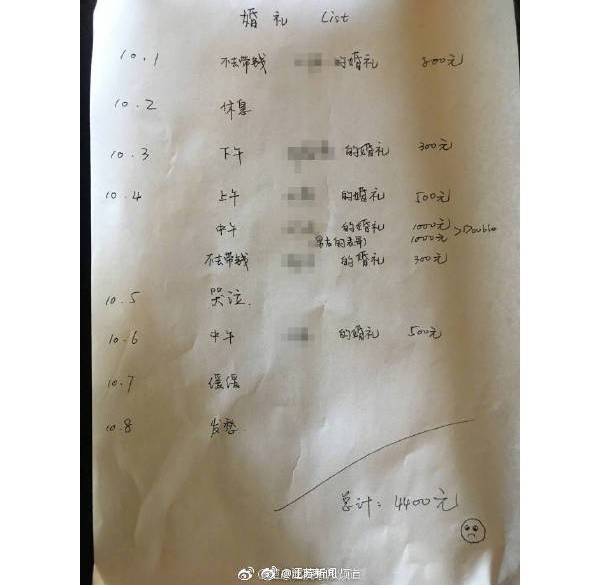 婚礼 List
10.1 不去带钱 的婚礼 800元
10.2 休息
10.3 下午 的婚礼 300元
10.4 上午 的婚礼 500元
中午 的婚礼 1000元 >Double
的表哥 1000元
不去带钱 的婚礼 300元
10.5 哭泣.
10.6 中午 的婚礼 500元
10.7 缓缓
10.8 发愁
总计: 4400元
@江苏新闻